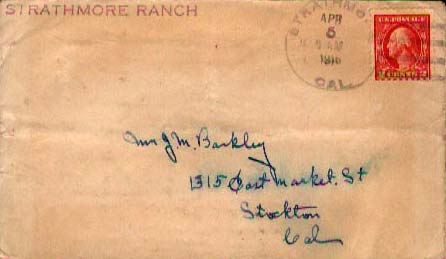 STRATHMORE RANCH
STRATHMORE
APR
5
AM
1916
CAL.
U.S. POSTAGE
Mr J. M. Barkley
1315 East Market. St
Stockton
Cal